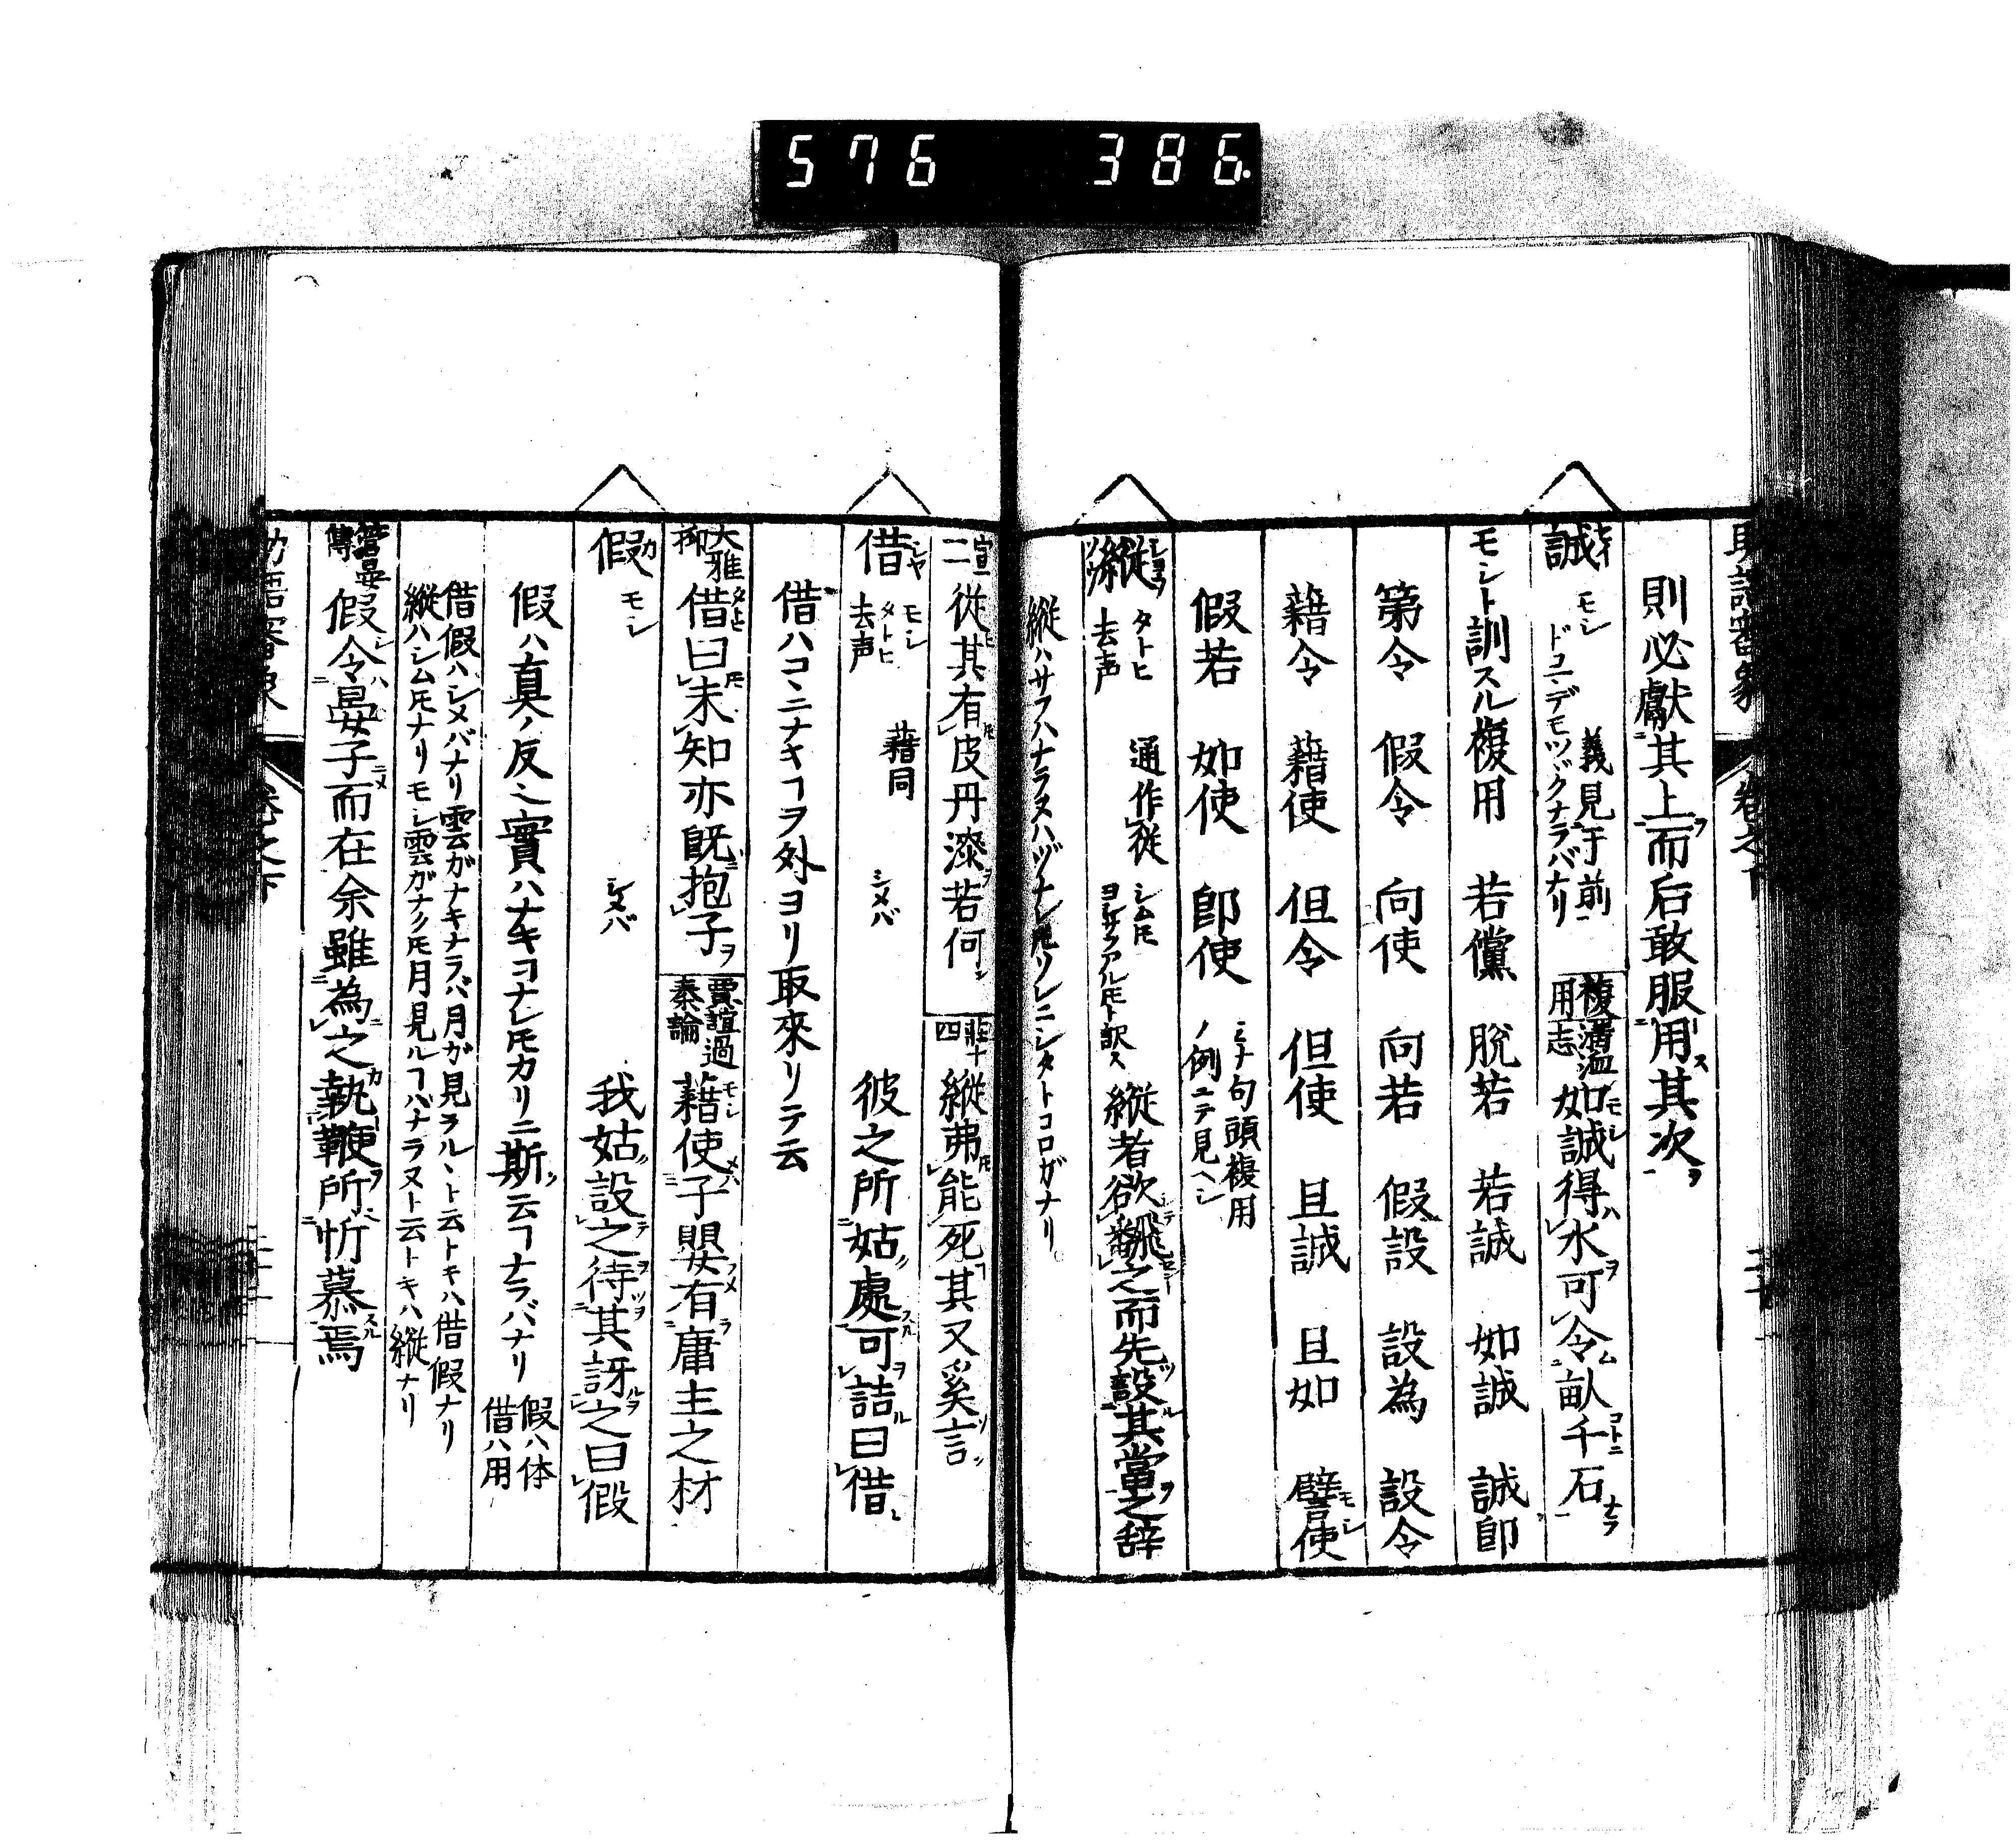 576 386
則必獻其上而后敢服用其次
誠 モシ 義見于前 複用 溝洫志 如誠得水可令畝千石
ドコニデモツヾクナラバナリ
モシト訓スル複用 若儻 脱若 若誠 如誠 誠即
第令 假令 向使 向若 假設 設為 設令
藉令 藉使 但令 但使 且誠 且如 譬使
假若 如使 即使 ミナ句頭複用ノ例ニテ見ヘシ
縱 タトヒ 去声 通作従 シムトモ 縱者欲飜之而先設其當之辞
縱ハサフハナラヌハヅナレ𪜈ソレニシタトコロガナリ
宣二 従其有皮丹漆若何 荘十四 縱弗能死其又奚言
借 シヤ モシ タトヒ 去声 藉同 シメバ 彼之所姑處可詰曰借
借ハコヽニナキヿヲ外ヨリ取來リテ云
大雅抑 借曰未知亦既抱子 賈誼過秦論 藉使子嬰有庸主之材
假 カ モシ シメバ 我姑設之待其訝之曰假
假ハ真ノ反シ實ハナキヿナレ𪜈カリニ斯云ヿナラバナリ 假ハ体 借ハ用
借假ハシメバナリ雲ガナキナラバ月ガ見ラルヽト云トキハ借假ナリ
縱ハシム𪜈ナリモシ雲ガナク𪜈月見ルヿハナラヌト云トキハ縱ナリ
管晏傳 假令晏子而在余雖為之執鞭所忻慕焉